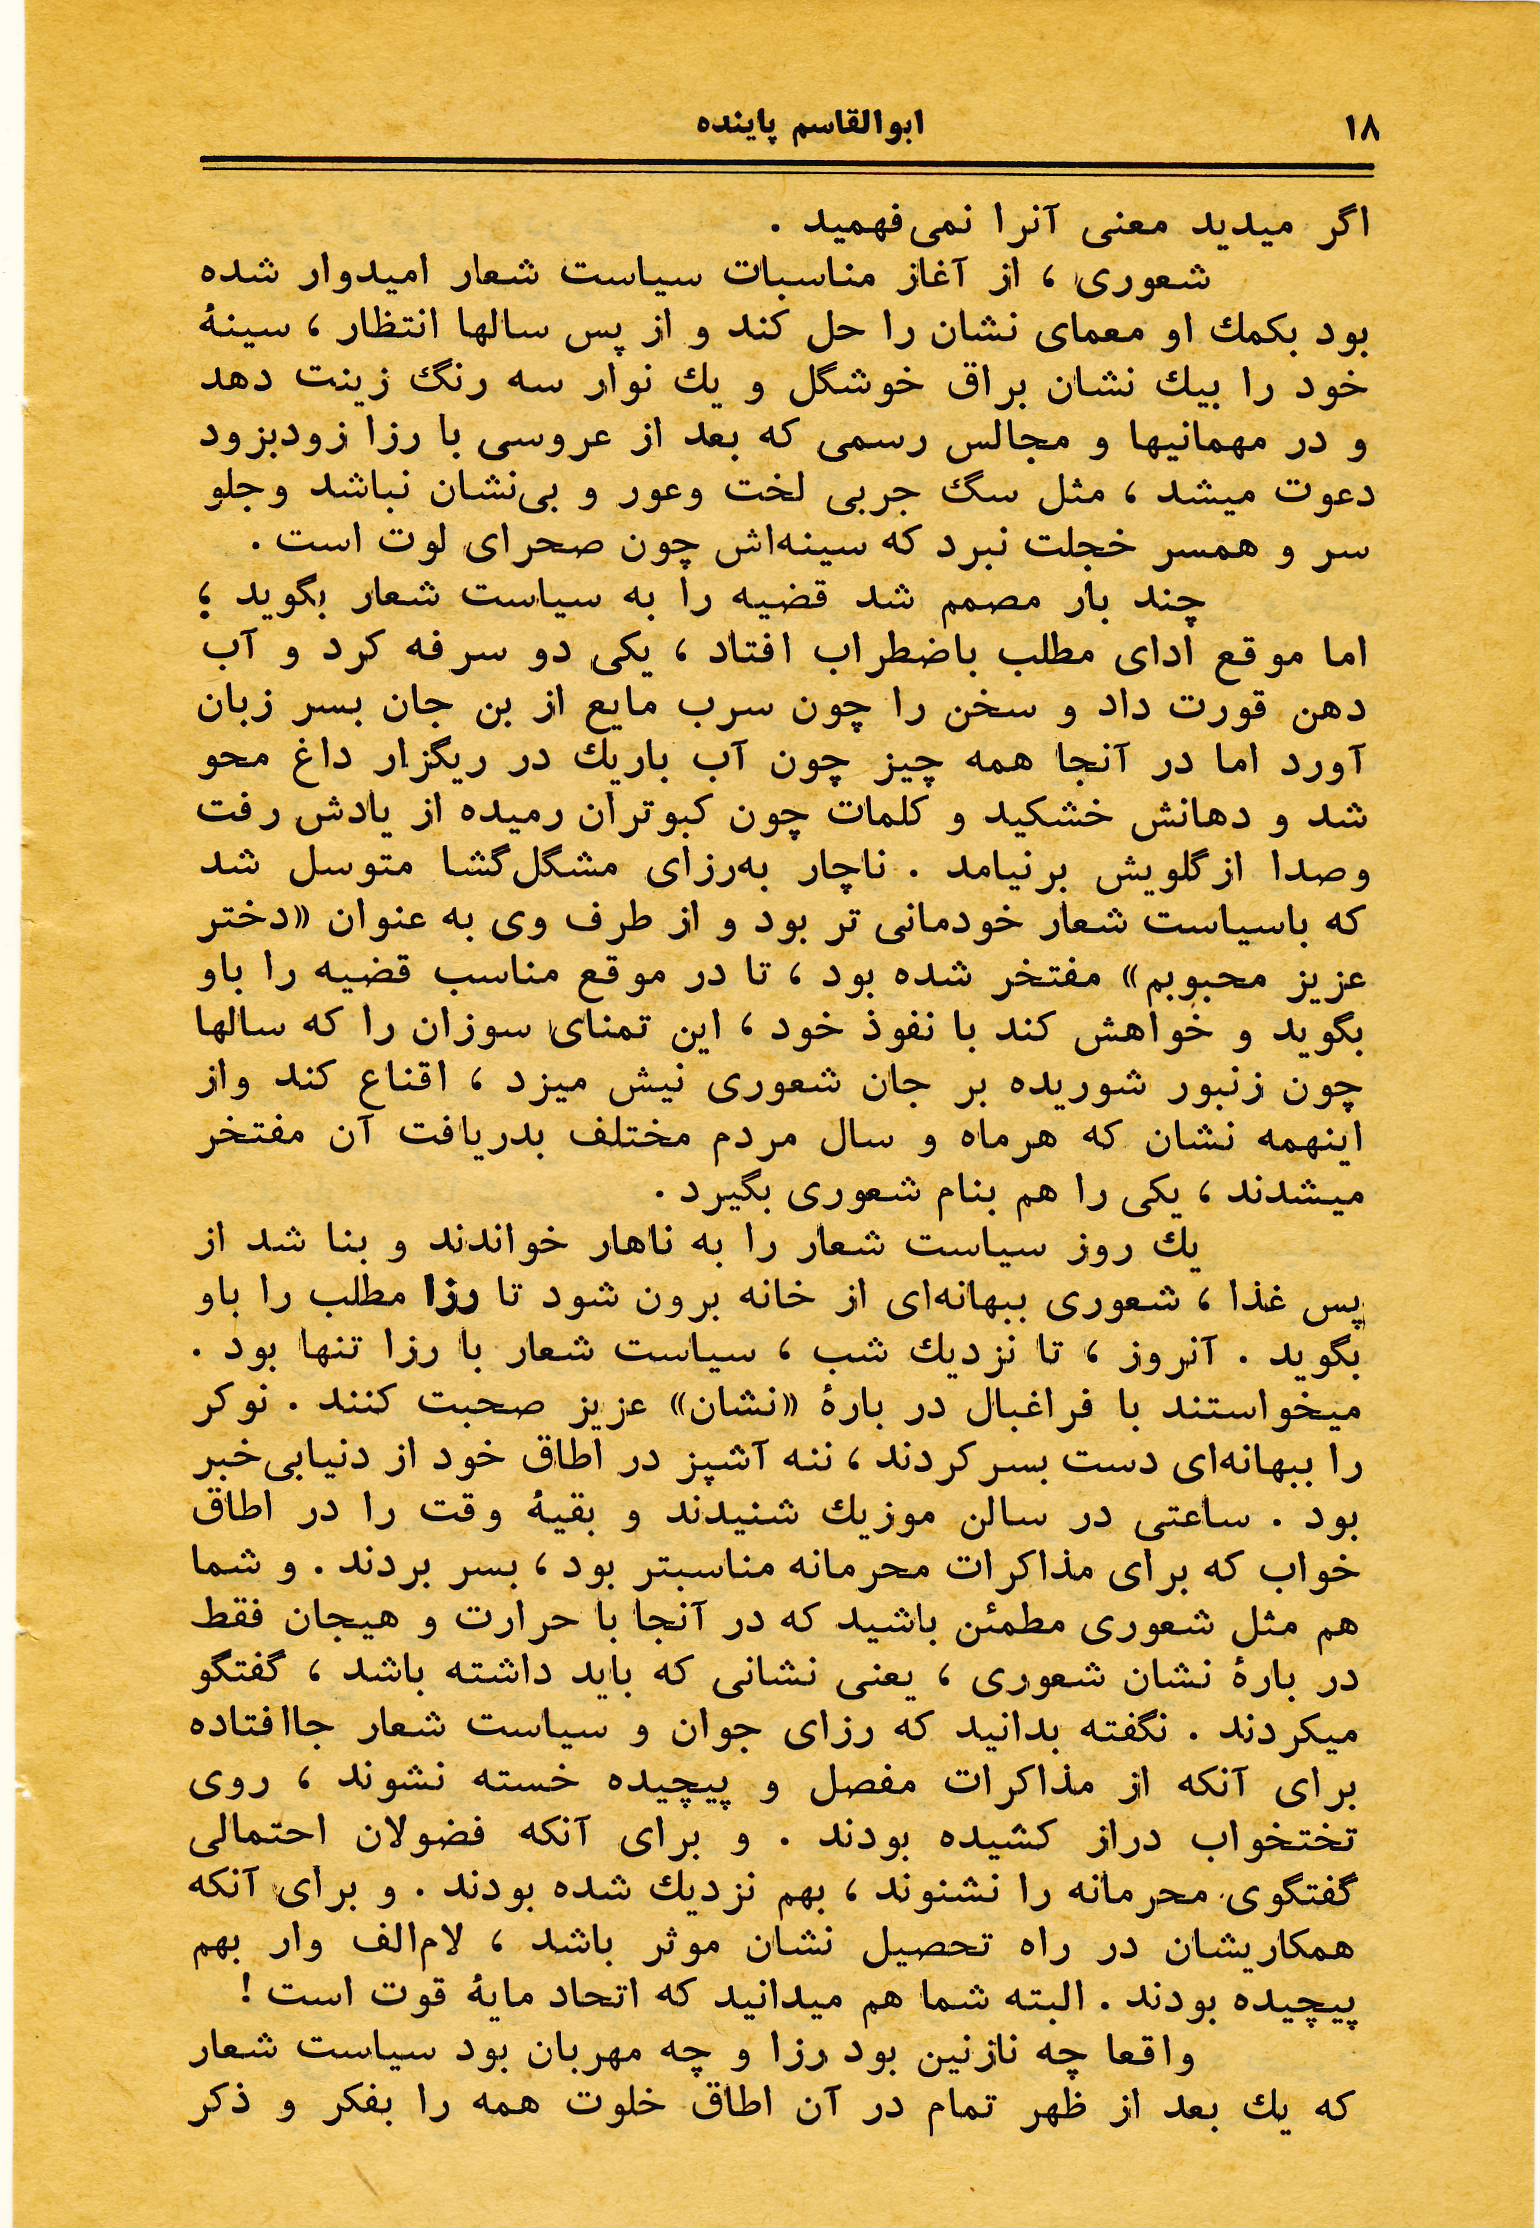 ۱۸
ابوالقاسم پاینده
اگر میدید معنی آنرا نمی‌فهمید .
شعوری ، از آغاز مناسبات سیاست شعار امیدوار شده
بود بکمك او معمای نشان را حل کند و از پس سالها انتظار ، سینۀ
خود را بیك نشان براق خوشگل و یك نوار سه رنگ زینت دهد
و در مهمانیها و مجالس رسمی که بعد از عروسی با رزا زودبزود
دعوت میشد ، مثل سگ جربی لخت وعور و بی‌نشان نباشد وجلو
سر و همسر خجلت نبرد که سینه‌اش چون صحرای لوت است .
چند بار مصمم شد قضیه را به سیاست شعار بگوید ؛
اما موقع ادای مطلب باضطراب افتاد ، یکی دو سرفه کرد و آب
دهن قورت داد و سخن را چون سرب مایع از بن جان بسر زبان
آورد اما در آنجا همه چیز چون آب باریك در ریگزار داغ محو
شد و دهانش خشکید و کلمات چون کبوتران رمیده از یادش رفت
وصدا ازگلویش برنیامد . ناچار به‌رزای مشگل‌گشا متوسل شد
که باسیاست شعار خودمانی تر بود و از طرف وی به عنوان «دختر
عزیز محبوبم» مفتخر شده بود ، تا در موقع مناسب قضیه را باو
بگوید و خواهش کند با نفوذ خود ، این تمنای سوزان را که سالها
چون زنبور شوریده بر جان شعوری نیش میزد ، اقناع کند واز
اینهمه نشان که هرماه و سال مردم مختلف بدریافت آن مفتخر
میشدند ، یکی را هم بنام شعوری بگیرد .
یك روز سیاست شعار را به ناهار خواندند و بنا شد از
پس غذا ، شعوری ببهانه‌ای از خانه برون شود تا رزا مطلب را باو
بگوید . آنروز ، تا نزدیك شب ، سیاست شعار با رزا تنها بود .
میخواستند با فراغبال در بارۀ «نشان» عزیز صحبت کنند . نوکر
را ببهانه‌ای دست بسرکردند ، ننه آشپز در اطاق خود از دنیابی‌خبر
بود . ساعتی در سالن موزیك شنیدند و بقیۀ وقت را در اطاق
خواب که برای مذاکرات محرمانه مناسبتر بود ، بسر بردند . و شما
هم مثل شعوری مطمئن باشید که در آنجا با حرارت و هیجان فقط
در بارۀ نشان شعوری ، یعنی نشانی که باید داشته باشد ، گفتگو
میکردند . نگفته بدانید که رزای جوان و سیاست شعار جاافتاده
برای آنکه از مذاکرات مفصل و پیچیده خسته نشوند ، روی
تختخواب دراز کشیده بودند . و برای آنکه فضولان احتمالی
گفتگوی محرمانه را نشنوند ، بهم نزدیك شده بودند . و برای آنکه
همکاریشان در راه تحصیل نشان موثر باشد ، لام‌الف وار بهم
پیچیده بودند . البته شما هم میدانید که اتحاد مایۀ قوت است !
واقعا چه نازنین بود رزا و چه مهربان بود سیاست شعار
که یك بعد از ظهر تمام در آن اطاق خلوت همه را بفکر و ذکر